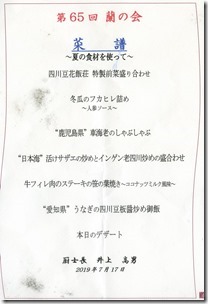 第65回 蘭の会
菜譜
～夏の食材を使って～
四川豆花飯荘 特製前菜盛り合わせ
冬瓜のフカヒレ詰め
～人参ソース～
"鹿児島県" 車海老のしゃぶしゃぶ
"日本海" 活けサザエの炒めとインゲン老四川炒めの盛合わせ
牛フィレ肉のステーキの笹の葉焼き～ココナッツミルク風味～
"愛知県" うなぎの四川豆板醤炒め御飯
本日のデザート
厨士長 井上 高勇
2019年7月17日